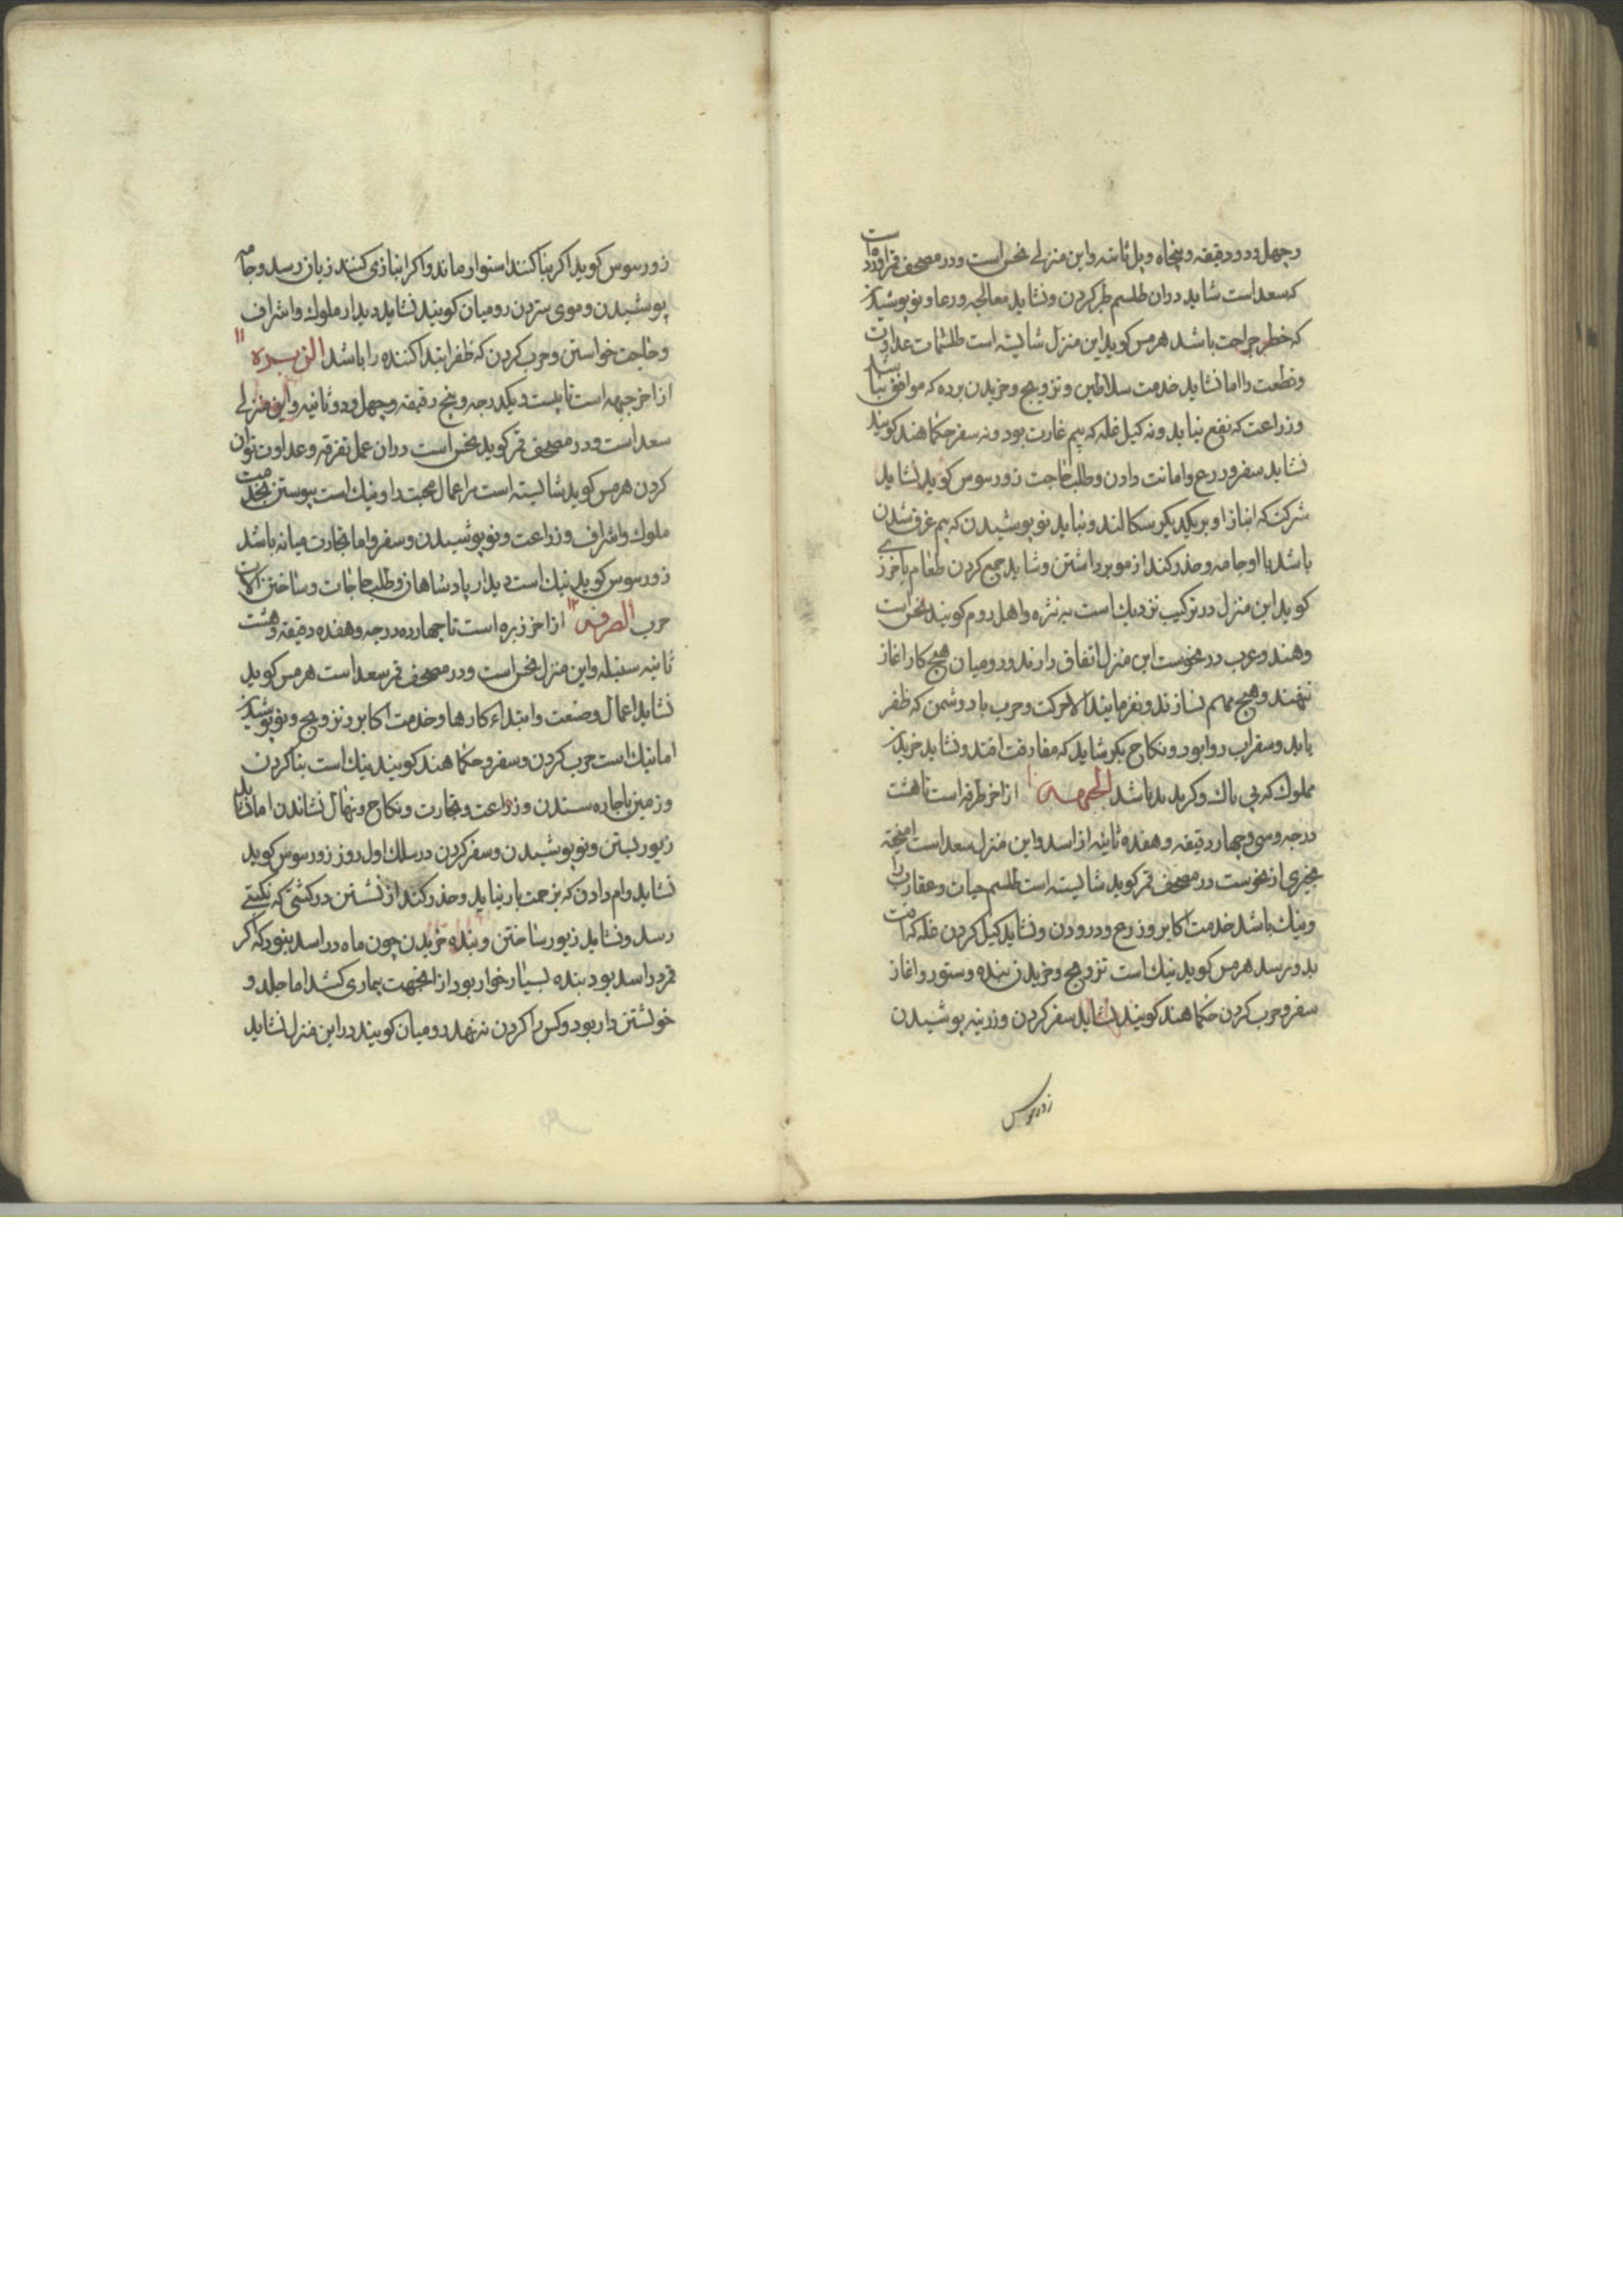 وچهل ودو دقیقه وپنجاه ویل ثانیه واین منزلے نحس است ودر مصحف قمر اورده است
که سعد است شاید دران طلسم ظفر کردن ونشاید معالجه ورعا ونو پوشیدن
که خطر جراحت باشد هرمس کوید این منزل شایسته است طلسمات عداوت
وقطعت را اما نشاید خدمت سلاطین وتزویج وخریدن برده که موافق نباشد
وزراعت که نفع نیابد ونه کیل غله که بیم غارت بود ونه سفر حکما هند کویند
نشاید سفر وزرع وامانت دادن وطلب حاجت زورسوس کوید نشاید
شرکت که انبازا وبریکدیکر سکالند ونباید نو پوشیدن که بیم غرق شدن
باشد با او جامه وحذر کند از مو برداشتن وشاید جمع کردن طعام باخرزی
کوید این منزل در ترکیب نزدیك است به نثره واهل روم کویند نحس است
وهند وعرب در نحوست این منزل اتفاق دارند ورومیان هیچ کار اغاز
ننهند وهیچ مهم نسازند ونفرمایند الا حرکت وحرب با دوشمن که ظفر
یابد وسفر اب روا بود ونکاح بکر شاید که مفارقت افتد ونشاید خریدن
مملوك که بی باك وکربد بد باشد الجبهه ۱۰ از اخر طرفه است تا هشت
درجه وسی وچهار دقیقه وهفده ثانیه از اسد واین منزل سعد است امیخته
بچیزی از نحوست در مصحف قمر کوید شایسته است طلسم حیات وعقارب را
ونیك باشد خدمت اکابر وزرع ودرودن ونشاید کیل کردن غله که افت
بدو رسد هرمس کوید نیك است تزویج وخریدن بنده وستور واغاز
سفر وحرب کردن حکما هند کویند نشاید سفر کردن وزرینه پوشیدن
زورسوس
زورسوس کوید اکر بنا کنند استوار ماند واکر انبازی کنند زیان رسد وجامه
پوشیدن وموی ستردن رومیان کویند نشاید دیدار ملوك واشراف
وحاجت خواستن وحرب کردن که ظفر ابتدا کننده را باشد الزبره ۱۱
از اخر جبهه است تا بیست ویکدرجه وپنج دقیقه وچهل ودو ثانیه واین منزلے
سعد است ودر مصحف قمر کوید نحس است دران عمل تفرقه وعداوت توان
کردن هرمس کوید شایسته است مر اعمال محبت را ونیك است پیوستن بخدمت
ملوك واشراف وزراعت ونو پوشیدن وسفر واما تجارت میانه باشد
زورسوس کوید نیك است دیدار پادشاهان وطلب حاجات وساختن الات
حرب الصرفه ۱۲ از اخر زبره است تا چهارده درجه وهفده دقیقه وهشت
ثانیه سنبله واین منزل نحس است ودر مصحف قمر سعد است هرمس کوید
نشاید اعمال وصنعت وابتداء کارها وخدمت اکابر وتزویج ونو پوشیدن
اما نیك است حرب کردن وسفر وحکما هند کویند نیك است بنا کردن
وزمین باجاره ستدن وزراعت وتجارت ونکاح ونهال نشاندن اما نشاید
زیور بستن ونو پوشیدن وسفر کردن در سلك اول روز زورسوس کوید
نشاید وام دادن که بزحمت باز نیاید وحذر کند از نشستن در کشتی که نکبتے
رسد ونشاید زیور ساختن وبنده خریدن چون ماه در اسد بنود که اکر
قمر در اسد بود بنده بسیار خوار بود از انجهت بیماری کشد اما جلد و
خویشتن دار بود وکس را کردن ننهد رومیان کویند در این منزل نشاید